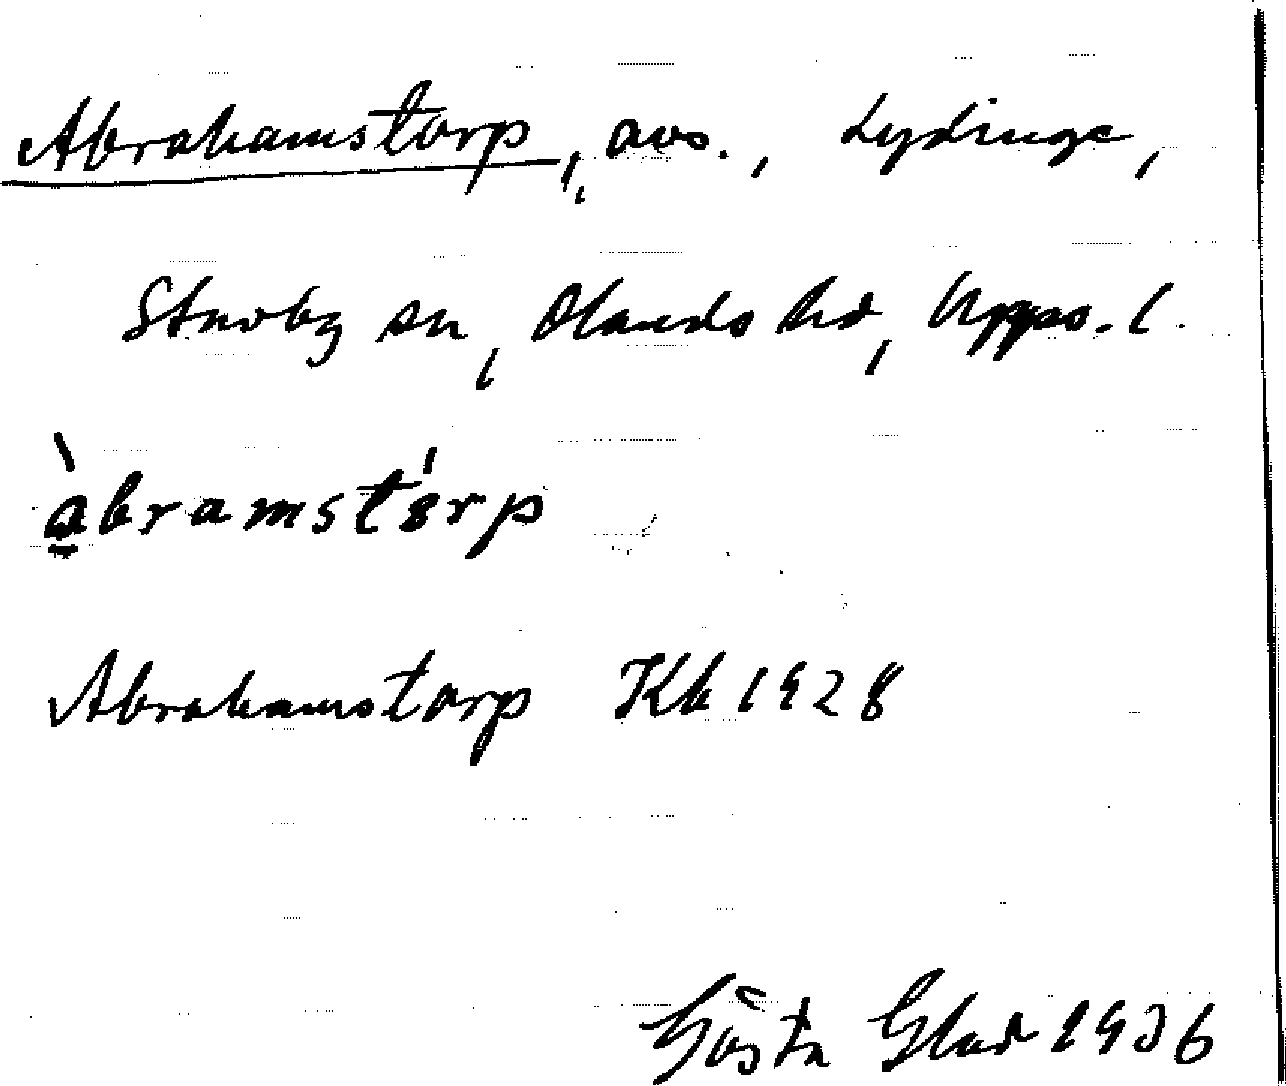 Abrahamstorp, avs., Lydinge,
Stavby sn, Olands hd, Upps. l.
àbramstórp
Abrahamstorp Kk 1928
Gösta Glad 1936